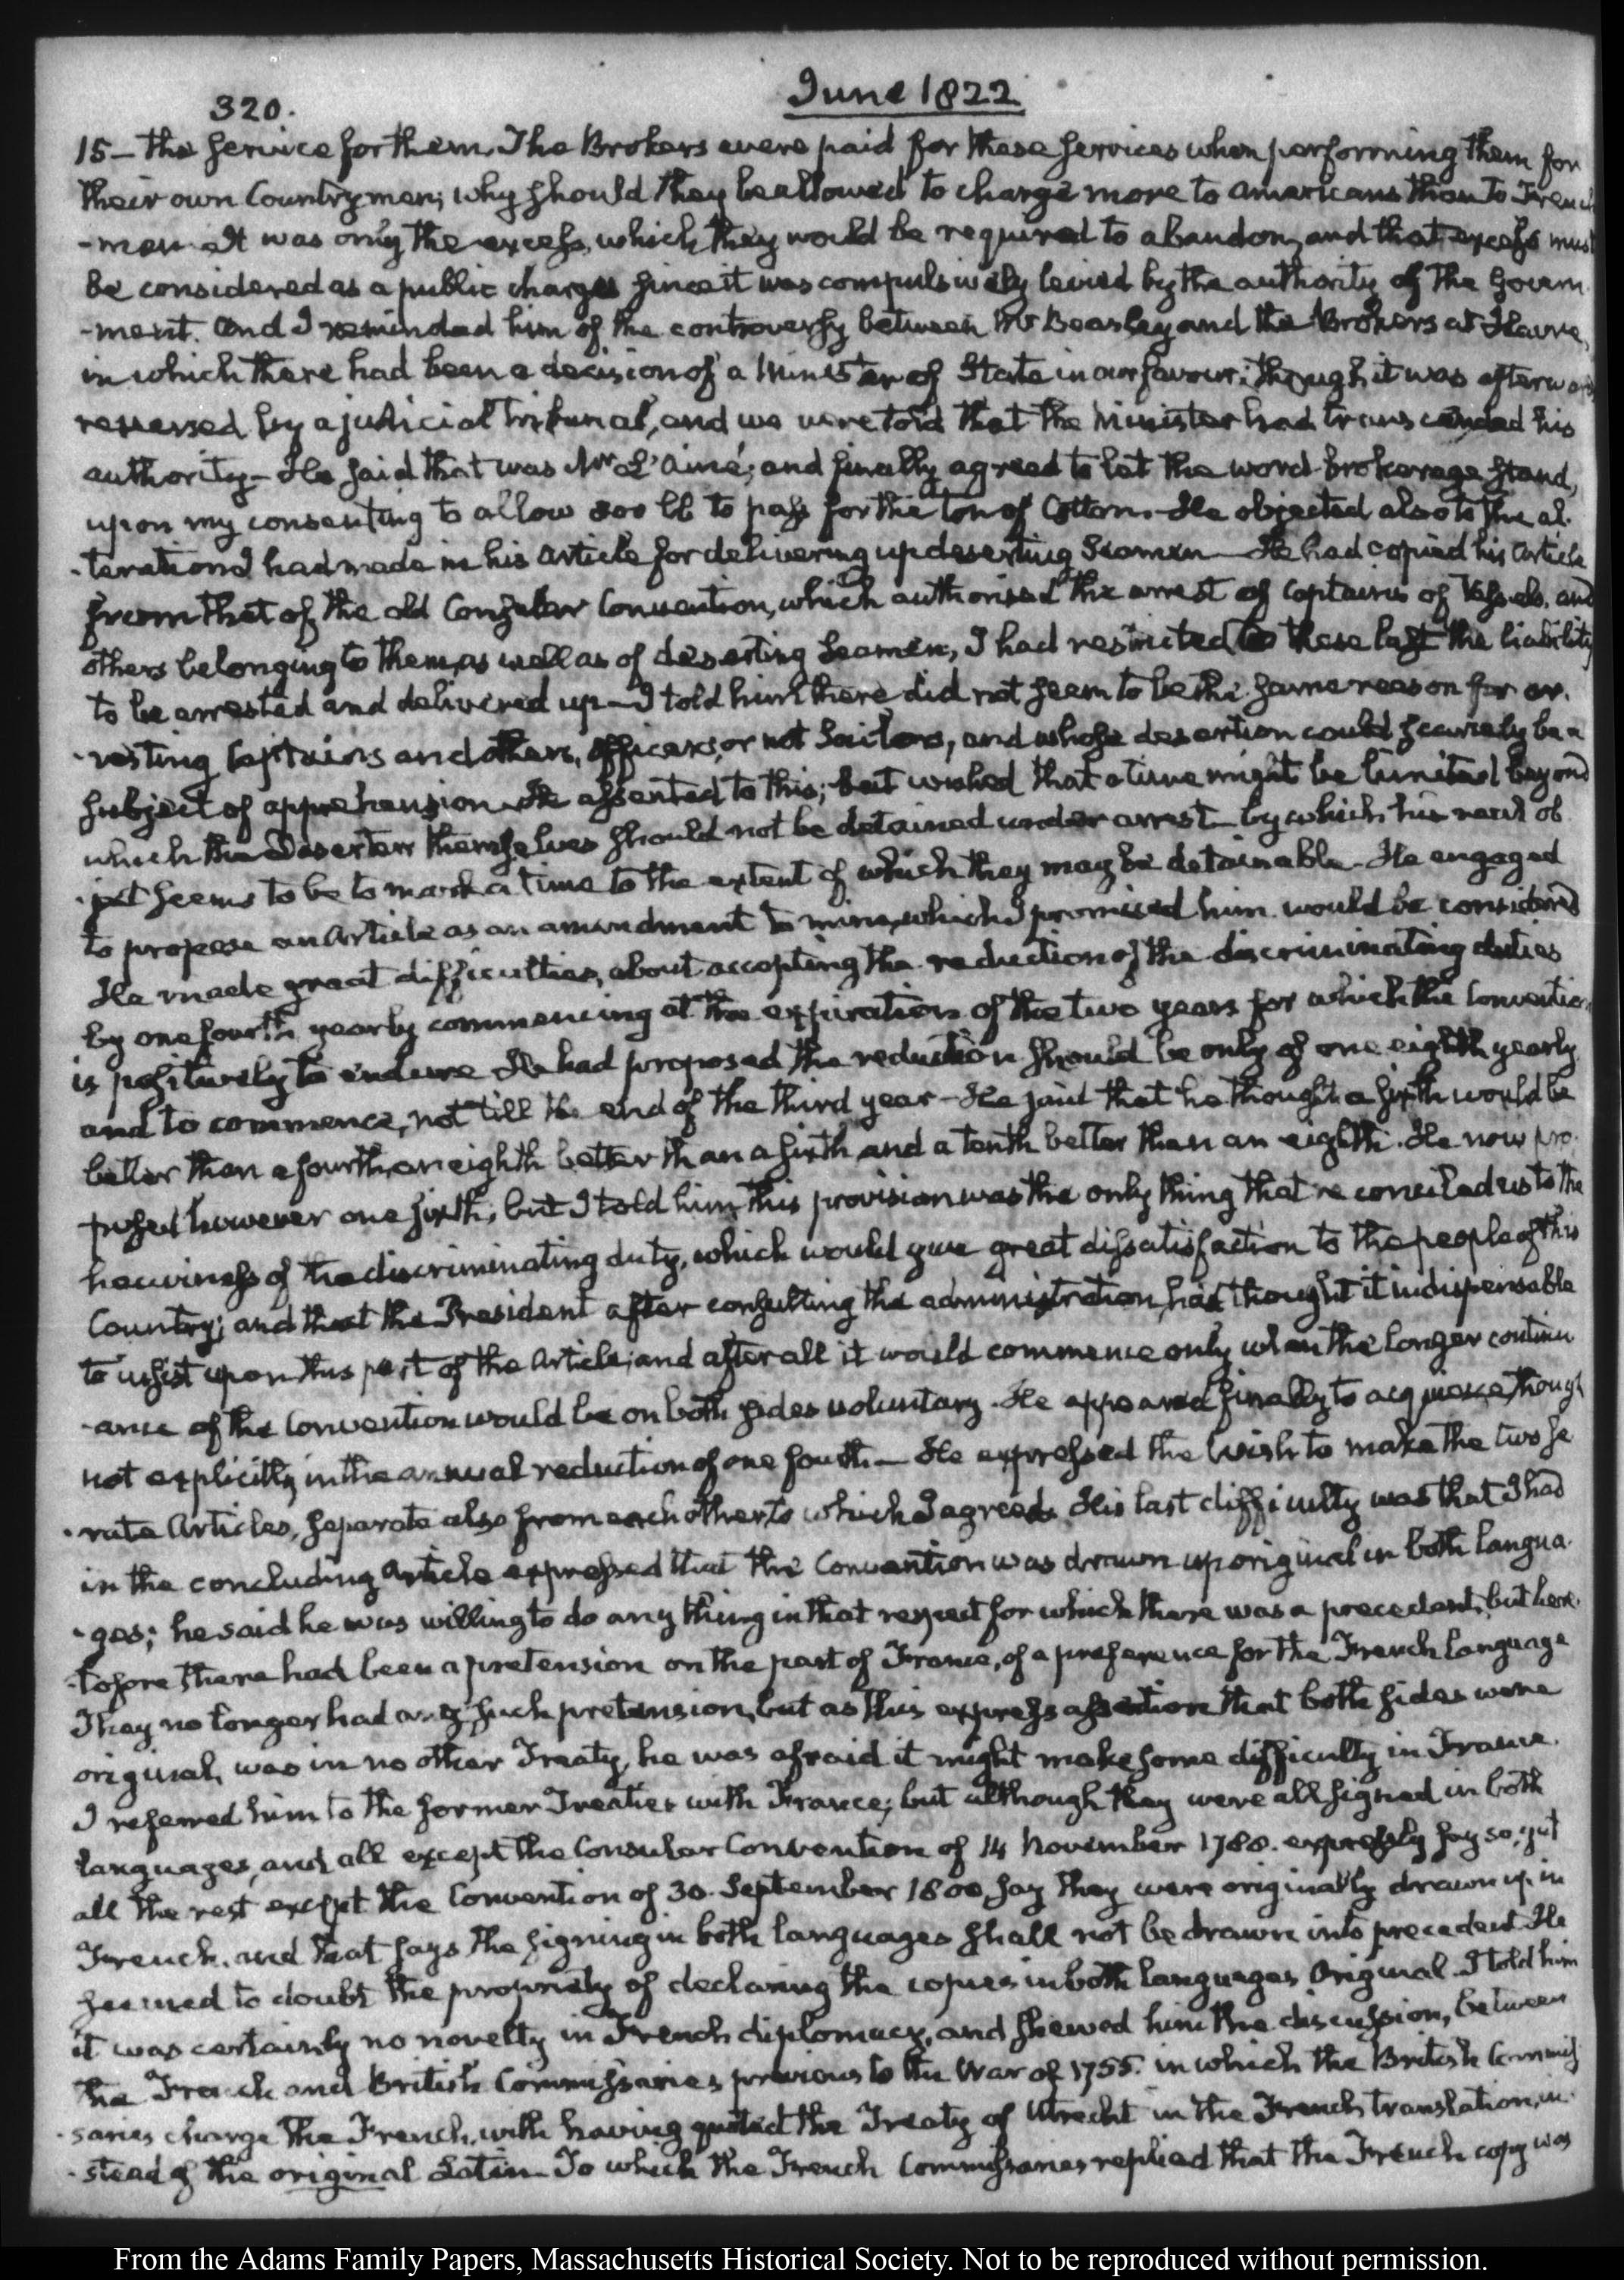 320.
June 1822
15– the service for them. The Brokers were paid for these services when performing them for
their own Countrymen; why should they be allowed to charge more to Americans than to French
-men. It was only the excess, which they would be required to abandon, and that excess must
be considered as a public charge, since it was compulsively levied by the authority of the Govern
-ment. And I reminded him of the controversy between Mr Beasley and the Brokers at Havre,
in which there had been a decision of a Minister of State in our favour; though it was afterwards
reversed by a judicial tribunal, and we were told that the Minister had transcended his
authority– He said that was Mr L'ainé; and finally agreed to let the word brokerage stand,
upon my consenting to allow 800 lb to pass for the ton of Cotton.– He objected also to the al-
-terations I had made in his Article for delivering up deserting Seamen– He had copied his Article
from that of the old Consular Convention, which authorised the arrest of Captains of Vessels, and
others belonging to them, as well as of deserting Seamen, I had restricted to these last the liability
to be arrested and delivered up– I told him there did not seem to be the same reason for ar-
-resting Captains and others, officers, or not Sailors, and whose desertion could scarcely be a
subject of apprehension. He assented to this; but wished that a time might be limited beyond
which the Deserters themselves should not be detained under arrest– by which his real ob
-ject seems to be to mark a time to the extent of which they may be detainable– He engaged
to propose an Article as an amendment to mine, which I promised him would be considered
He made great difficulties, about accepting the reduction of the discriminating duties
by one fourth yearly commencing at the expiration of the two years for which the Convention
is positively to endure He had proposed the reduction should be only of one eighth yearly
and to commence, not till the end of the third year– He said that he thought a sixth would be
better than a fourth, an eighth better than a sixth, and a tenth better than an eighth. He now pro-
posed however one sixth; but I told him this provision was the only thing that reconciled us to the
heaviness of the discriminating duty, which would give great dissatisfaction to the people of this
Country; and that the President after consulting the administration, had thought it indispensable
to insist upon this part of the Article; and after all it would commence only when the longer continu
-ance of the Convention would be on both sides voluntary. He appeared finally to acquiesce, though
not explicitly in the annual reduction of one fourth– He expressed the wish to make the two se
-rate Articles, separate also from each other, to which I agreed. His last difficulty was that I had
in the concluding Article expressed that the Convention was drawn up original in both langua-
-ges; he said he was willing to do any thing in that respect for which there was a precedent, but here-
-tofore there had been a pretension on the part of France, of a preference for the French language
They no longer had any such pretension, but as this express assertion that both sides were
original, was in no other Treaty, he was afraid it might make some difficulty in France.
I referred him to the former Treaties with France; but although they were all signed in both
languages, and all except the Consular Convention of 14 November 1788. expressly say so, yet
all the rest except the Convention of 30. September 1800 say they were originally drawn up in
French. and that says the signing in both languages shall not be drawn into precedent. He
seemed to doubt the propriety of declaring the copies in both languages Original. I told him
it was certainly no novelty in French diplomacy, and shewed him the discussion, between
the French and British Commissaries previous to the War of 1755. in which the British Commis
-saries charge the French, with having quoted the Treaty of Utrecht in the French translation, in-
-stead of the original Latin– To which the French Commissaries replied that the French copy was
From the Adams Family Papers, Massachusetts Historical Society. Not to be reproduced without permission.